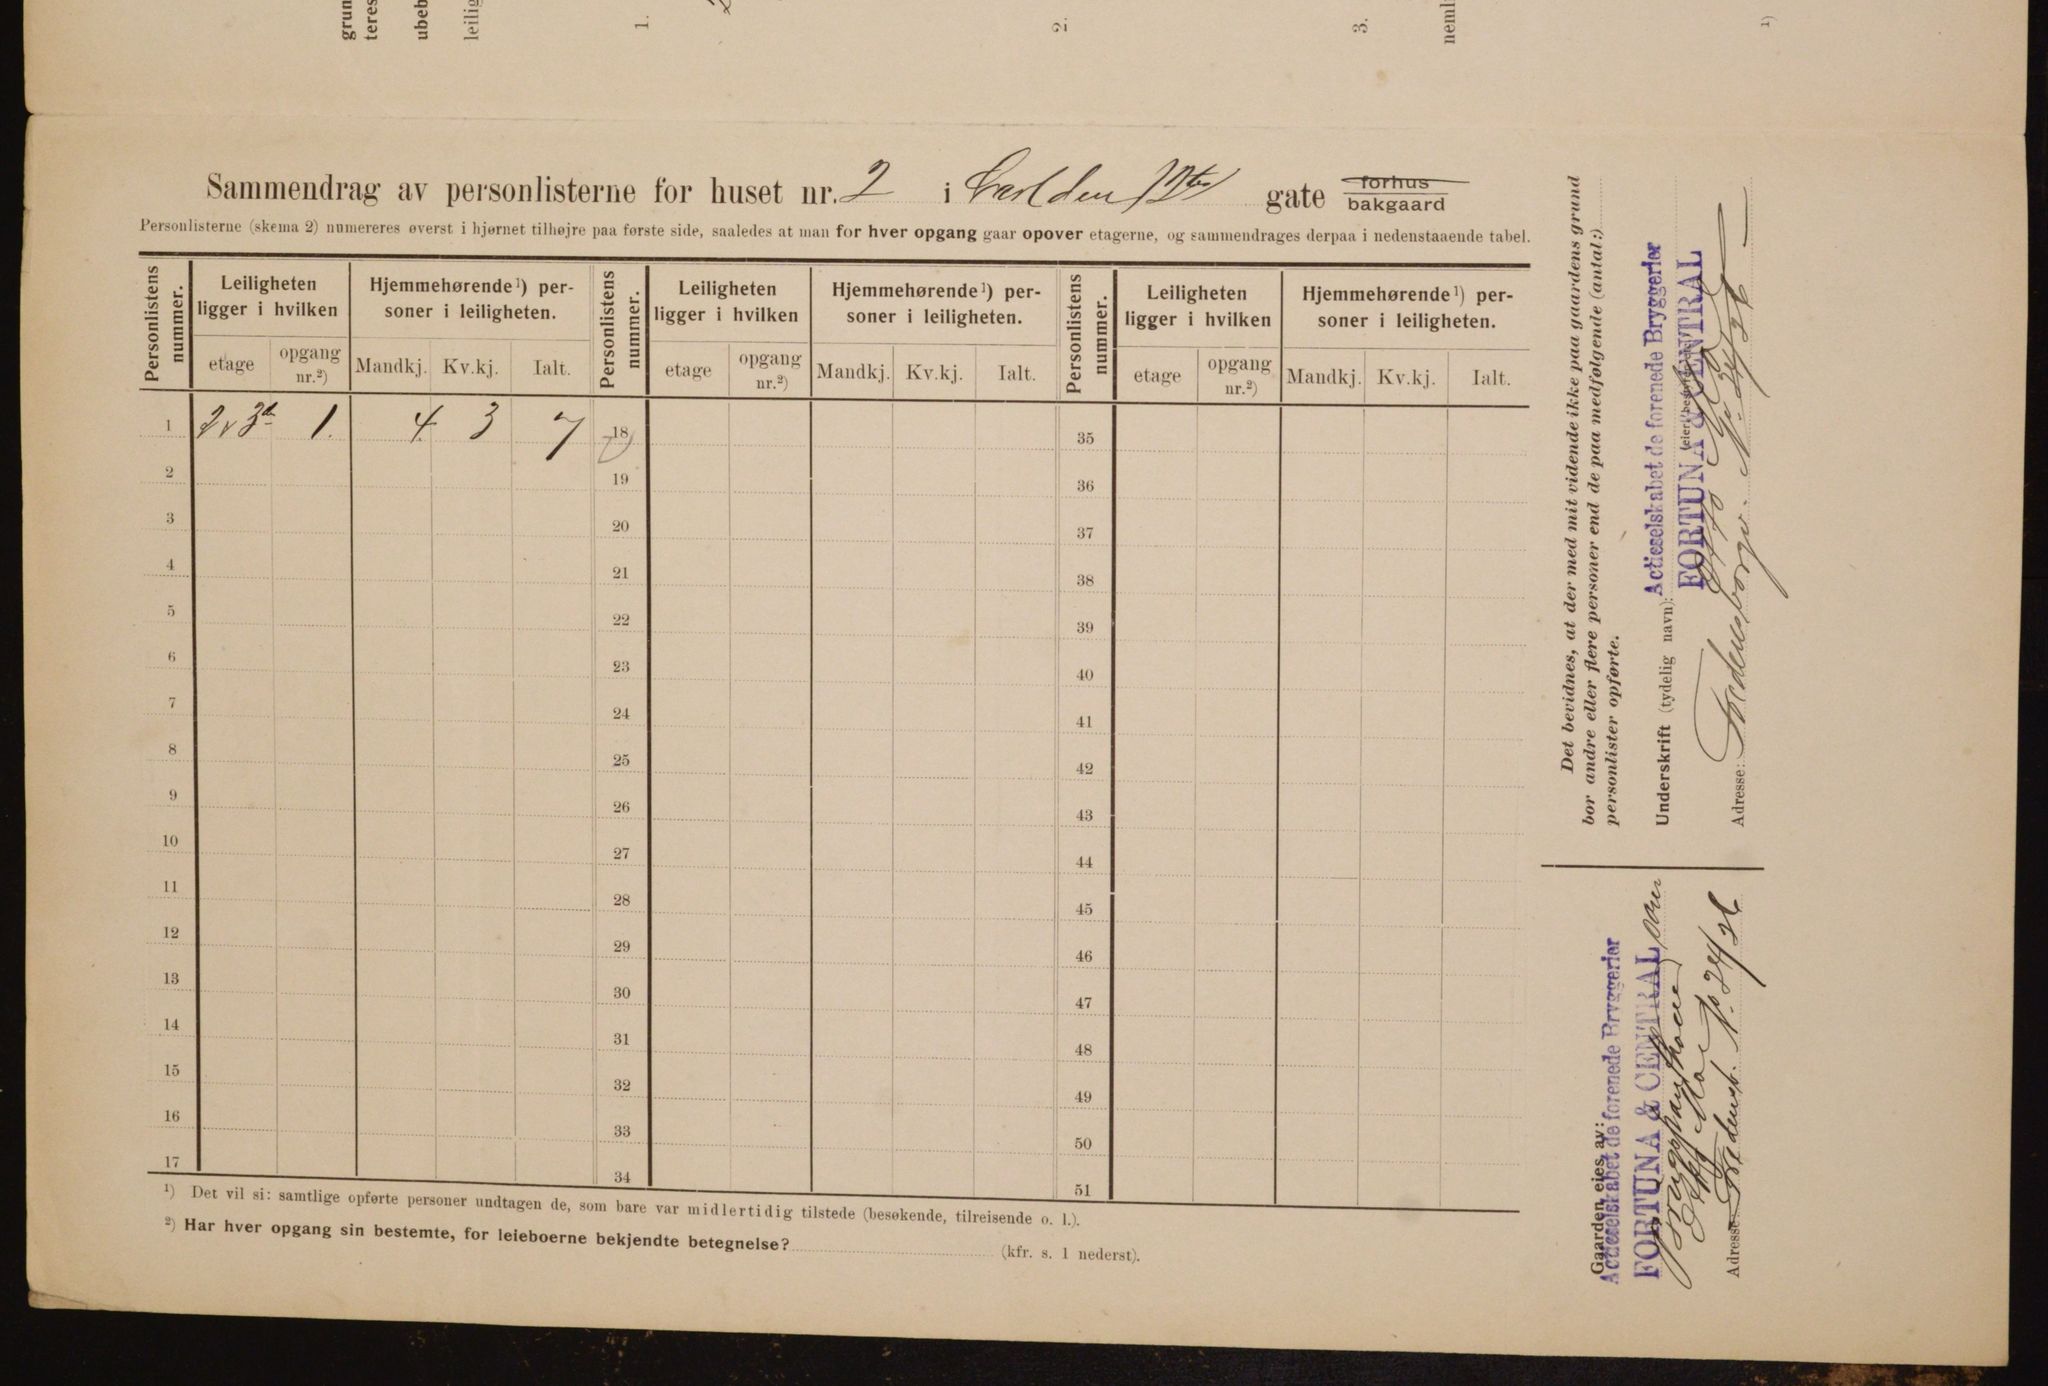 grun
teres
ubeb
leilig
1.
2.
3.
neml
1)
Sammendrag av personlisterne for huset nr. 2 i Carl den 12tes gate forhus
bakgaard
Personlisterne (skema 2) numereres øverst i hjørnet tilhøjre paa første side, saaledes at man for hver opgang gaar opover etagerne, og sammendrages derpaa i nedenstaaende tabel.
Personlistens nummer. Leiligheten ligger i hvilken Hjemmehørende¹) personer i leiligheten. Personlistens nummer. Leiligheten ligger i hvilken Hjemmehørende¹) personer i leiligheten. Personlistens nummer. Leiligheten ligger i hvilken Hjemmehørende¹) personer i leiligheten.
etage opgang nr.²) Mandkj. Kv.kj. Ialt. etage opgang nr.²) Mandkj. Kv.kj. Ialt. etage opgang nr.²) Mandkj. Kv.kj. Ialt.
1 1. 4. 3 7 18 35
2 19 36
3 20 37
4 21 38
5 22 39
6 23 40
7 24 41
8 25 42
9 26 43
10 27 44
11 28 45
12 29 46
13 30 47
14 31 48
15 32 49
16 33 50
17 34 51
¹) Det vil si: samtlige opførte personer undtagen de, som bare var midlertidig tilstede (besøkende, tilreisende o. l.).
²) Har hver opgang sin bestemte, for leieboerne bekjendte betegnelse? (kfr. s. 1 nederst).
Det bevidnes, at der med mit vidende ikke paa gaardens grund
bor andre eller flere personer end de paa medfølgende (antal:)
personlister opførte.
Actieselskabet de forenede Bryggerier
FORTUNA & CENTRAL
Underskrift (tydelig navn):
Adresse: Fredensborgv. No. 24/26
Gaarden eies av:
Actieselskabet de forenede Bryggerier
FORTUNA & CENTRAL
Adresse: Fredensb. No 24/26